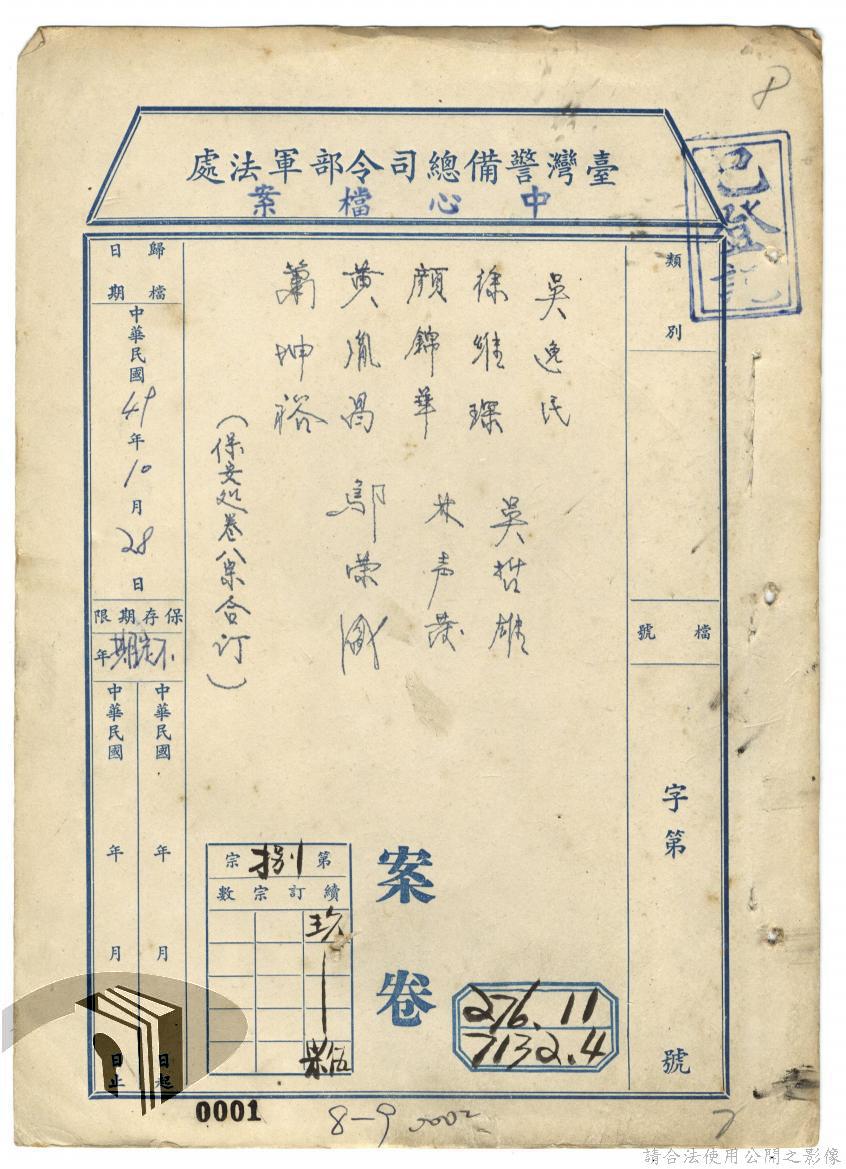 8
臺灣警備總司令部軍法處
中心檔案
已登記
類別
檔號
字第
號
吳逸民
徐維琛
吳哲雄
顏錦華
林声發
黃胤昌
鄔榮
蕭坤裕
(保安処卷八案合订)
案卷
276.11
7132.4
第捌宗
續訂宗數
玖
伍
歸檔日期
中華民國49年10月28日
保存期限
不定期年
中華民國 年 月 日起
中華民國 年 月 日止
0001
8-9
0002
7
請合法使用公開之影像